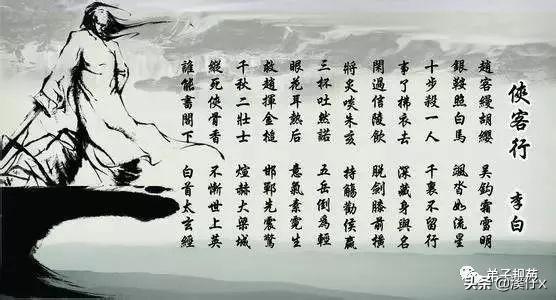 俠客行 李白
趙客縵胡纓 吳鈎霜雪明
銀鞍照白馬 颯沓如流星
十步殺一人 千裏不留行
事了拂衣去 深藏身與名
閑過信陵飲 脫劍膝前橫
將炙啖朱亥 持觴勸侯嬴
三杯吐然諾 五岳倒爲輕
眼花耳熱后 意氣素霓生
救趙揮金槌 邯鄲先震驚
千秋二壯士 煊赫大梁城
縱死俠骨香 不慚世上英
誰能書閣下 白首太玄經
弟子规苑
头条 @溪仔x